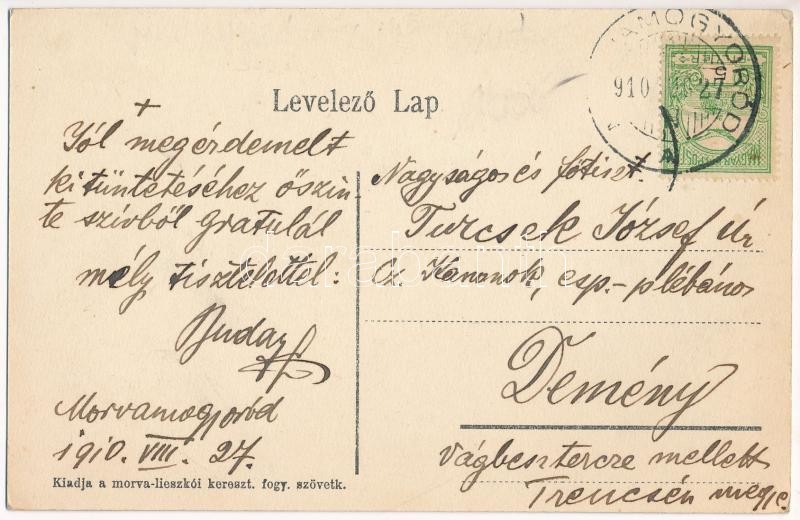 Levelező Lap
AMOGYORÓD
910
27
Jól megérdemelt
kitüntetéséhez őszin-
te szívből gratulál
mély tisztelettel:
Buday
Morvamogyoród
1910. VIII. 27.
Kiadja a morva-lieszkói kereszt. fogy. szövetk.
Nagyságos és főtiszt.
Turcsek József Úr
Cz. Kanonok, esp.-plébános
Demény
Vágbesztercze mellett
Trencsén megye.
darabanth